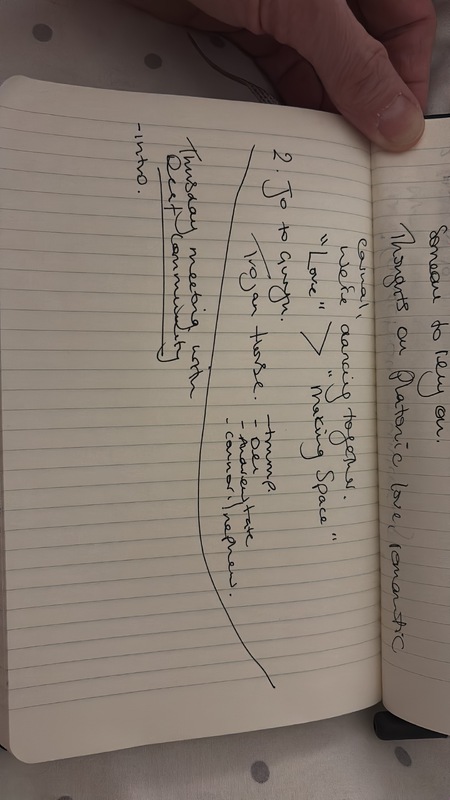 Someone to rely on.
Thoughts on Platonic love/romantic
casual,
We're dancing together.
"Love" > "Making Space"
2. Jo to
Trojan horse.
- trump.
- Dei
- Andrew tate
- Connor/nephew.
Thursday meeting with
Deaf Community
- intro.